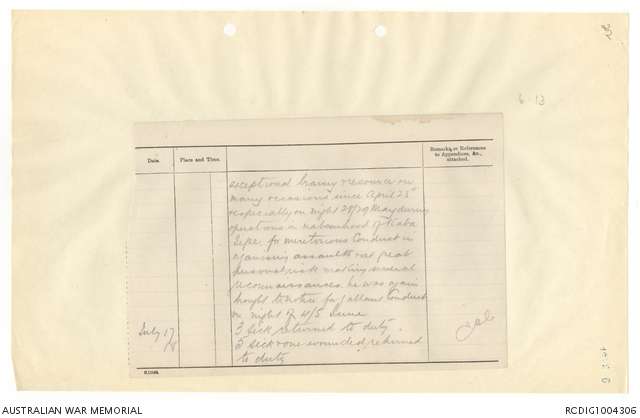 6.13
Date.
Place and Time.
Remarks, or References
to Appendices, &c.,
attached.
exceptional bravery & resource on
many occasions since April 25th
especially on night 28/29 May during
operations in nabourhood of Kaba
Tepe, for meritorious Conduct in
organising assault over great
personal risk making several
reconnaissances. he was again
brought to notice for gallant Conduct
on night of 4/5 June
July 17
3 sick returned to duty.
18
5 sick & one wounded, returned
to duty
AUSTRALIAN WAR MEMORIAL
RCDIG1004306